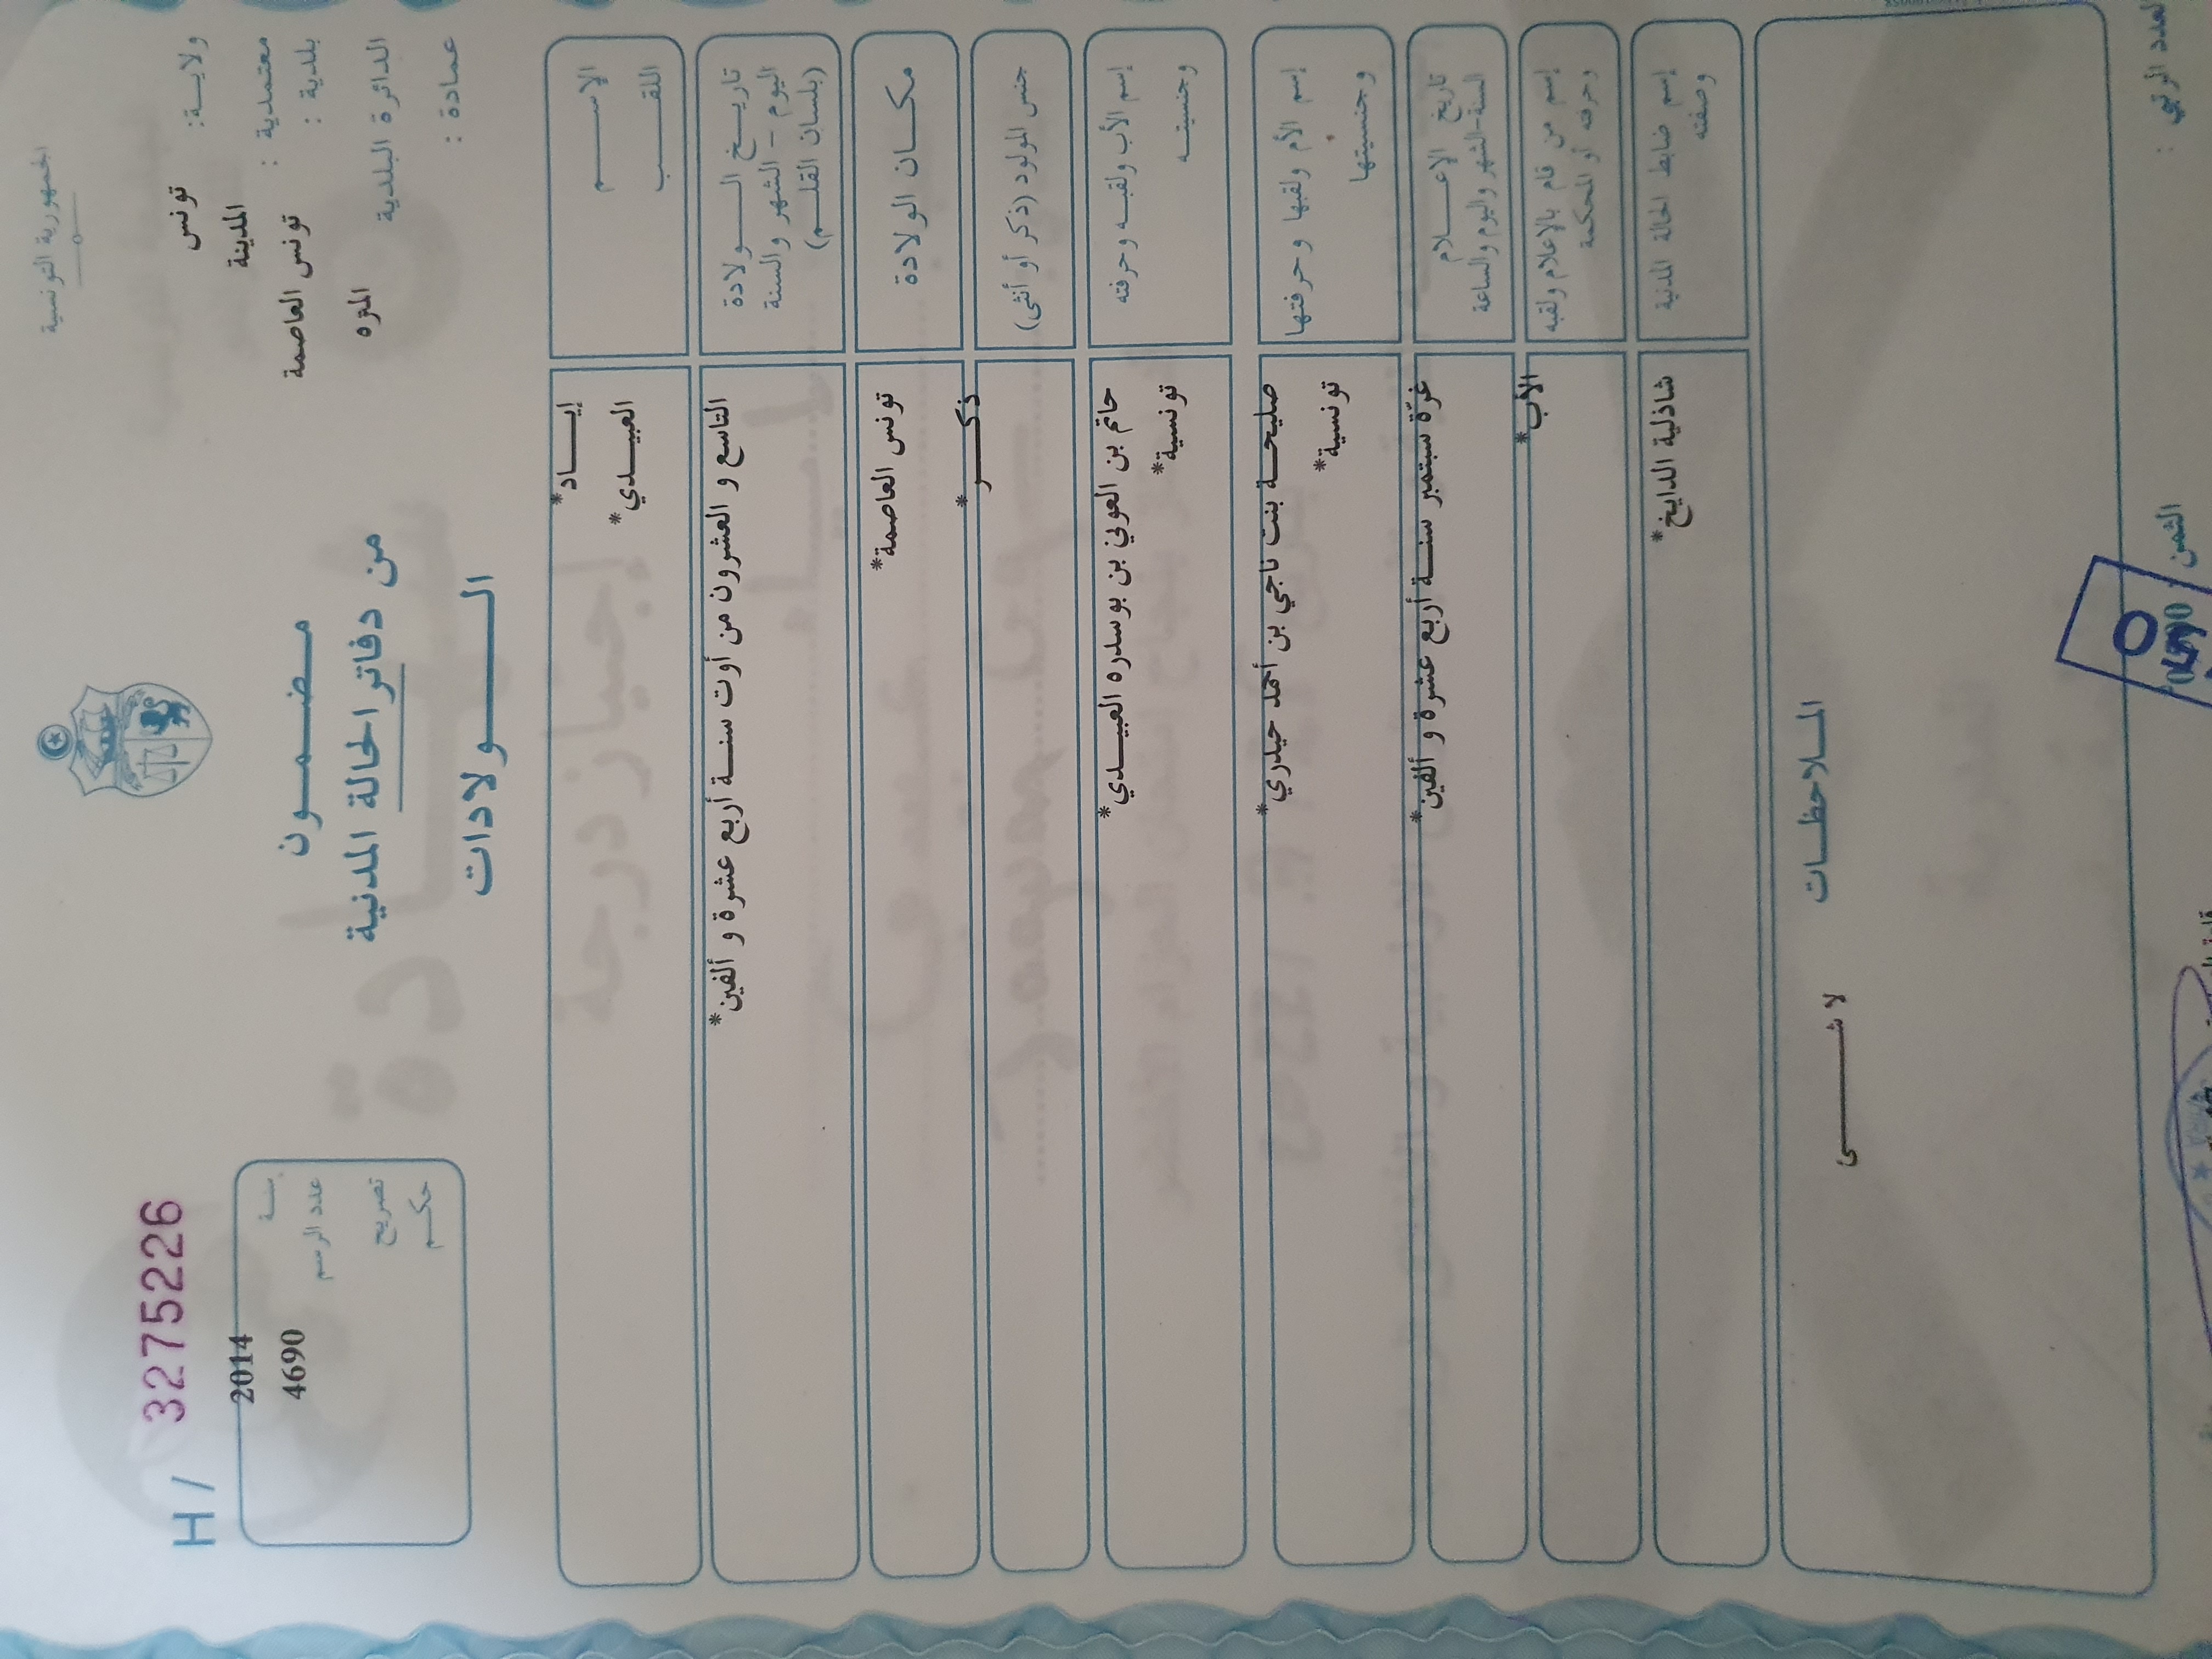 الجمهورية التونسية
ولايــة : تونس
معتمدية : المدينة
بلدية : تونس العاصمة
الدائرة البلدية المنزه
عمادة :
مضمــون
من دفاتر الحالة المدنية
الــولادات
H / 3275226
سنــة 2014
عدد الرسم 4690
تصريح
حكــم
الإســم
إيــاد*
اللقــب
العبيــدي*
تاريــخ الــولادة
اليوم - الشهر والسنة
(بلسان القلــم)
التاسع و العشرون من أوت سنــة أربع عشرة و ألفين*
مكــان الولادة
تونس العاصمة*
جنس المولود (ذكر أو أنثى)
ذكــر*
إسم الأب ولقبــه وحرفته
وجنسيتــه
حاتم بن العوني بن بوسدره العبيــدي*
تونسية*
إسم الأم ولقبها وحرفتها
وجنسيتها
صليحــة بنت ناجي بن أحمد حيدري*
تونسية*
تاريخ الإعــلام
السنة-الشهر واليوم والساعة
غرّة سبتمبر سنــة أربع عشرة و ألفين*
إسم من قام بالإعلام ولقبه
وحرفته أو المحكمة
الأب*
إسم ضابط الحالة المدنية
وصفته
شاذلية الدايخ*
الملاحظــات
لا شــئ
العدد الرتبي :
الثمن